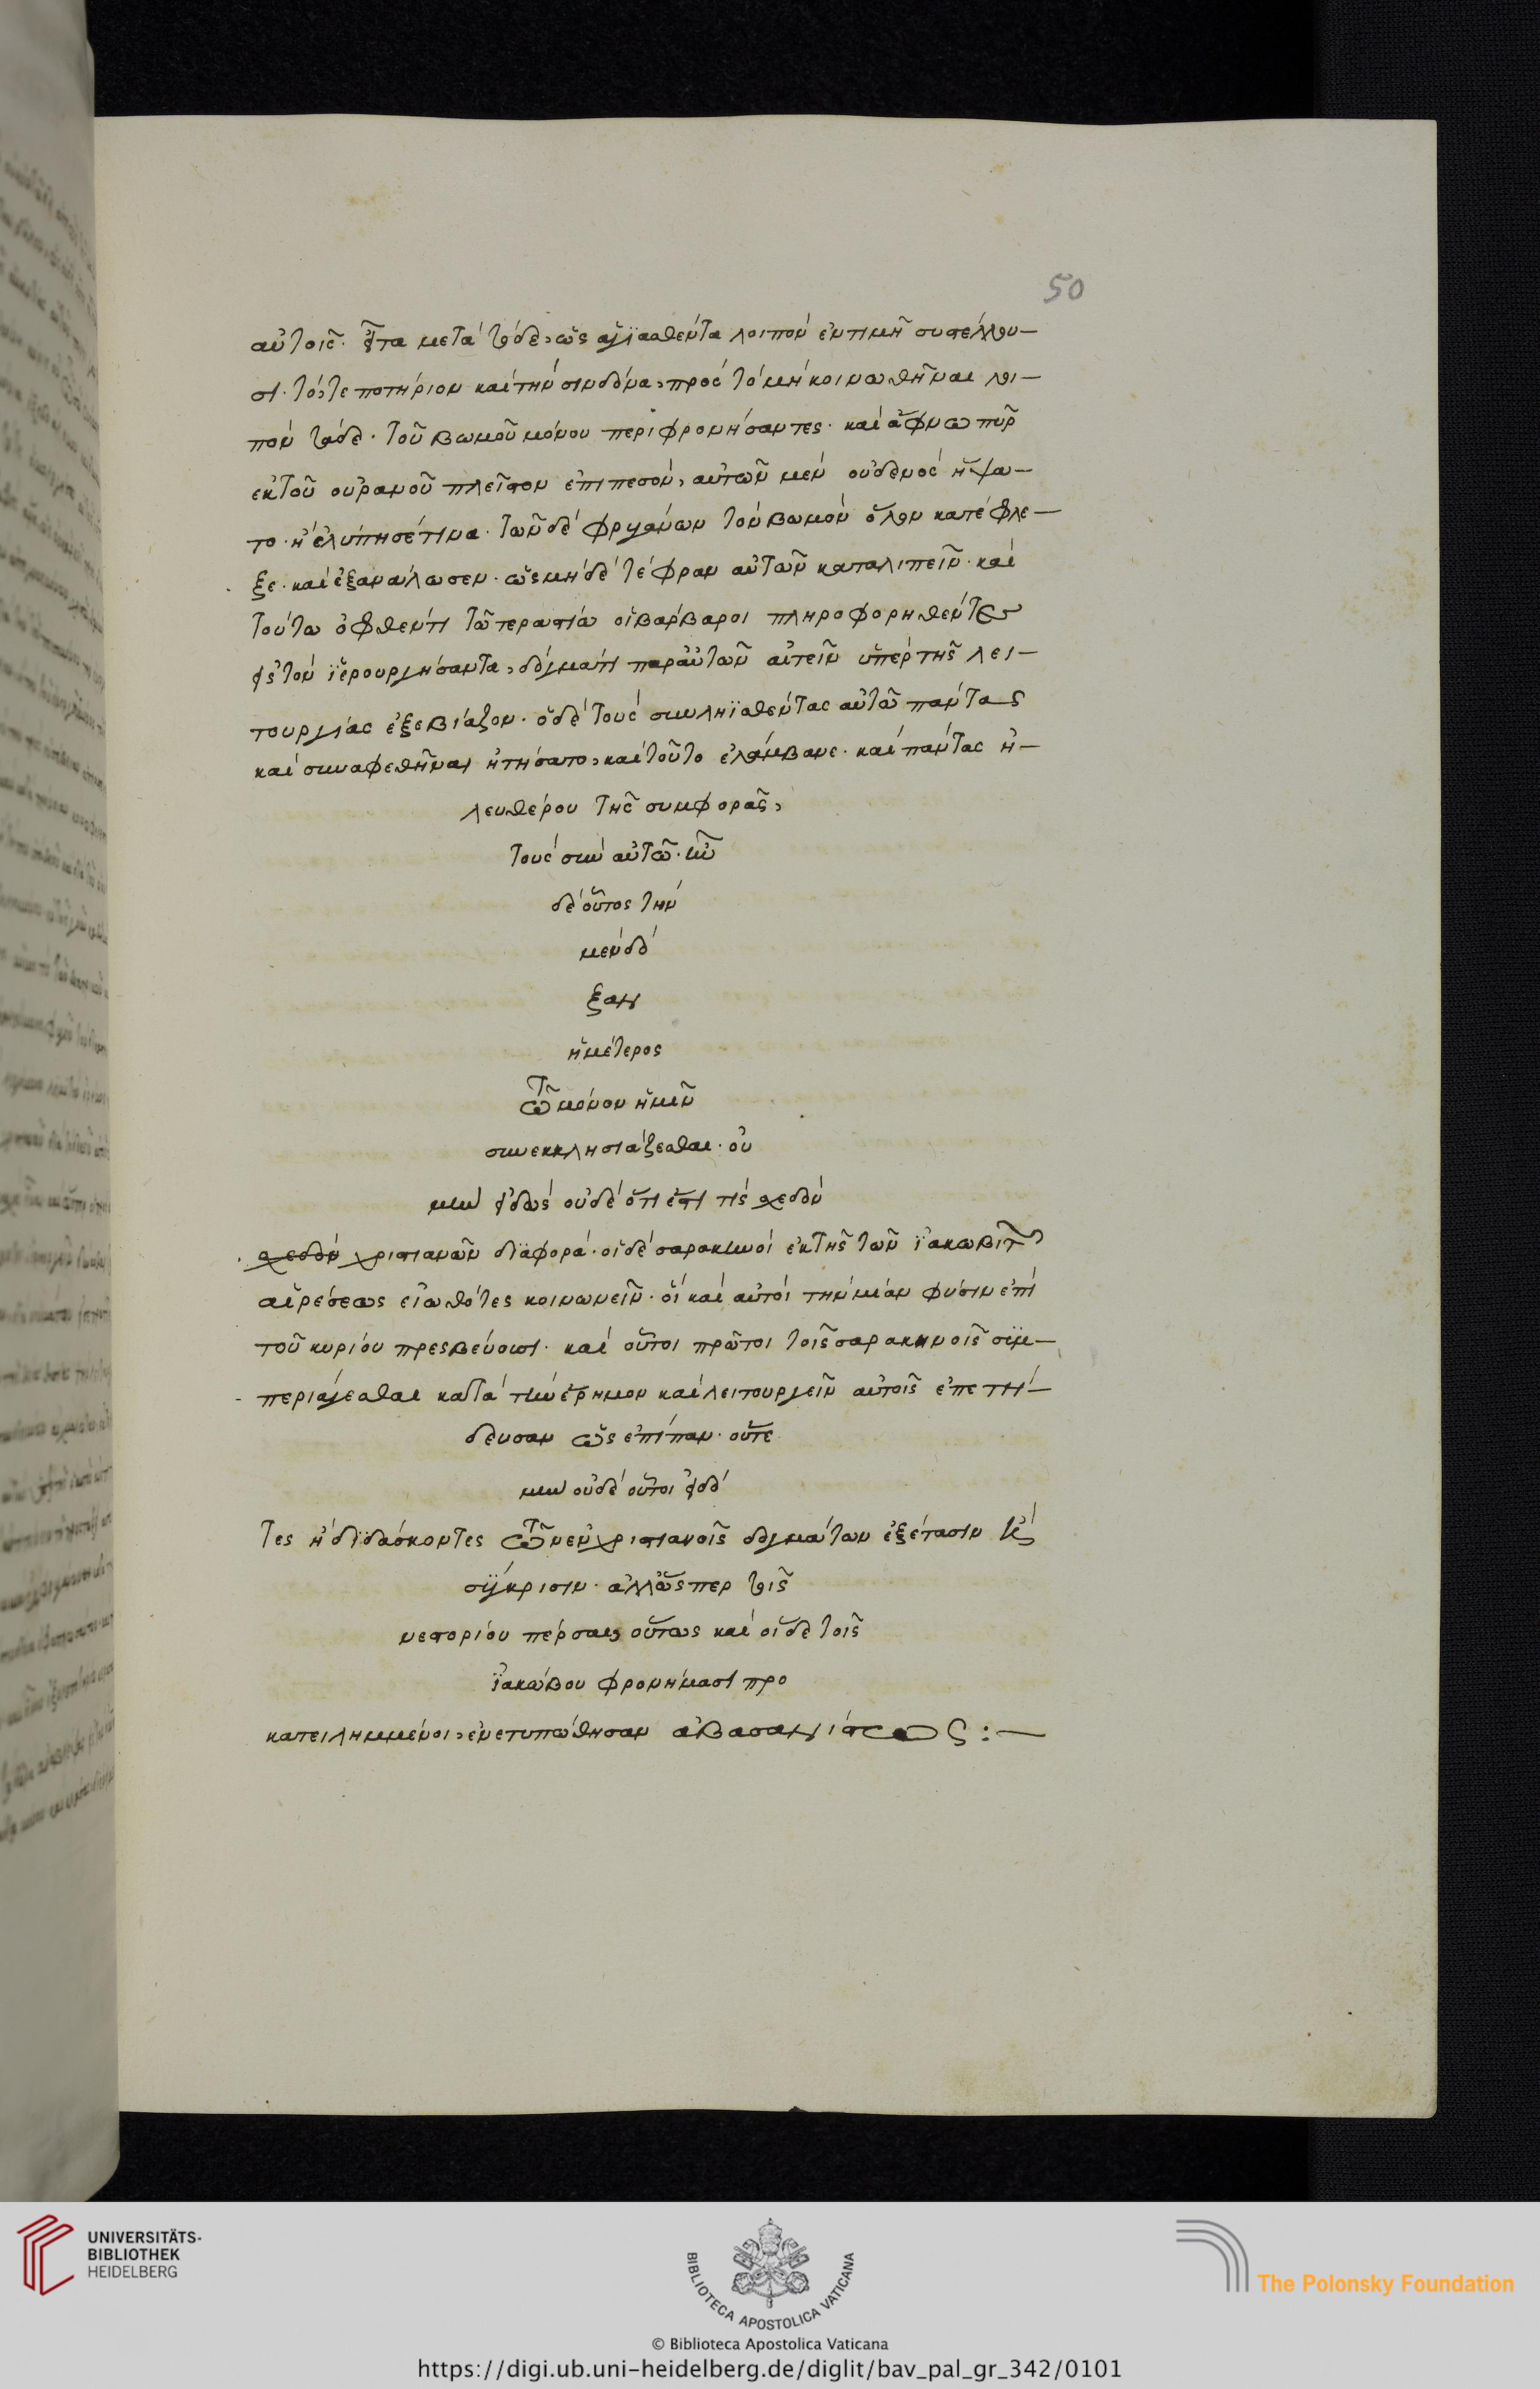 50
αὐτοῖς· εἶτα μετὰ τόδε, ὡς ἁγιασθέντα λοιπὸν ἐντιμῆ συστέλλου-
σι· τό, τε ποτήριον καὶ τὴν σινδόνα, πρὸς τὸ μὴ κοινωθῆναι λοι-
πὸν τάδε· τοῦ βωμοῦ μόνου περιφρονήσαντες· καὶ ἄφνω πῦρ
ἐκ τοῦ οὐρανοῦ πλεῖστον ἐπιπεσὸν, αὐτῶν μὲν οὐδενὸς ἥψα-
το· ἢ ἐλύπησέ τινα· τῶν δὲ φρυγάνων τὸν βωμὸν ὅλον κατέφλε-
ξε· καὶ ἐξανάλωσεν· ὡς μὴ δὲ τέφραν αὐτῶν καταλιπεῖν· καὶ
τούτω ὀφθέντι τῶ τεραστίω οἱ βάρβαροι πληροφορηθέντες
εἰς τὸν ἱερουργήσαντα, δόγματι παρ' αὐτῶν αἰτεῖν ὑπὲρ τῆς λει-
τουργίας ἐξεβίαζον· ὁ δὲ τοὺς συνληϊσθέντας αὐτῶ πάντας
καὶ συναφεθῆναι ἠτήσατο, καὶ τοῦτο ἐλάμβανε· καὶ πάντας ἠ-
λευθέρου τῆς συμφορᾶς,
τοὺς σὺν αὐτῶ· ἦν
δὲ οὗτος τὴν
μὲν δό
ξαν
ἡμέτερος
τῶ μόνον ἡμῖν
συνεκκλησιάζεσθαι· οὐ
μὴν εἰδὼς οὐδὲ ὅτι ἐστί τις σχεδὸν
σχεδὸν χριστιανῶν διαφορά· οἱ δὲ σαρακηνοὶ ἐκ τῆς τῶν ἰακωβιτῶν
αἱρέσεως εἰωθότες κοινωνεῖν· οἳ καὶ αὐτοὶ τὴν μίαν φύσιν ἐπὶ
τοῦ κυρίου πρεσβεύουσι· καὶ οὗτοι πρῶτοι τοῖς σαρακηνοῖς συμ-
περιάγεσθαι κατὰ τὴν ἔρημον καὶ λειτουργεῖν αὐτοῖς ἐπετή-
δευσαν ὡς ἐπίπαν· οὔτε
μὴν οὐδὲ οὗτοι εἰδό
τες ἢ διδάσκοντες τῶν ἐν χριστιανοῖς δογμάτων ἐξέτασιν καὶ
σύγκρισιν· ἀλλ' ὥσπερ τοῖς
νεστορίου πέρσαι, οὕτως καὶ οἵδε τοῖς
ἰακώβου φρονήμασι προ
κατειλημμένοι, ἐνετυπώθησαν ἀβασανίστως :—
UNIVERSITÄTS-
BIBLIOTHEK
HEIDELBERG
BIBLIOTECA APOSTOLICA VATICANA
The Polonsky Foundation
© Biblioteca Apostolica Vaticana
https://digi.ub.uni-heidelberg.de/diglit/bav_pal_gr_342/0101